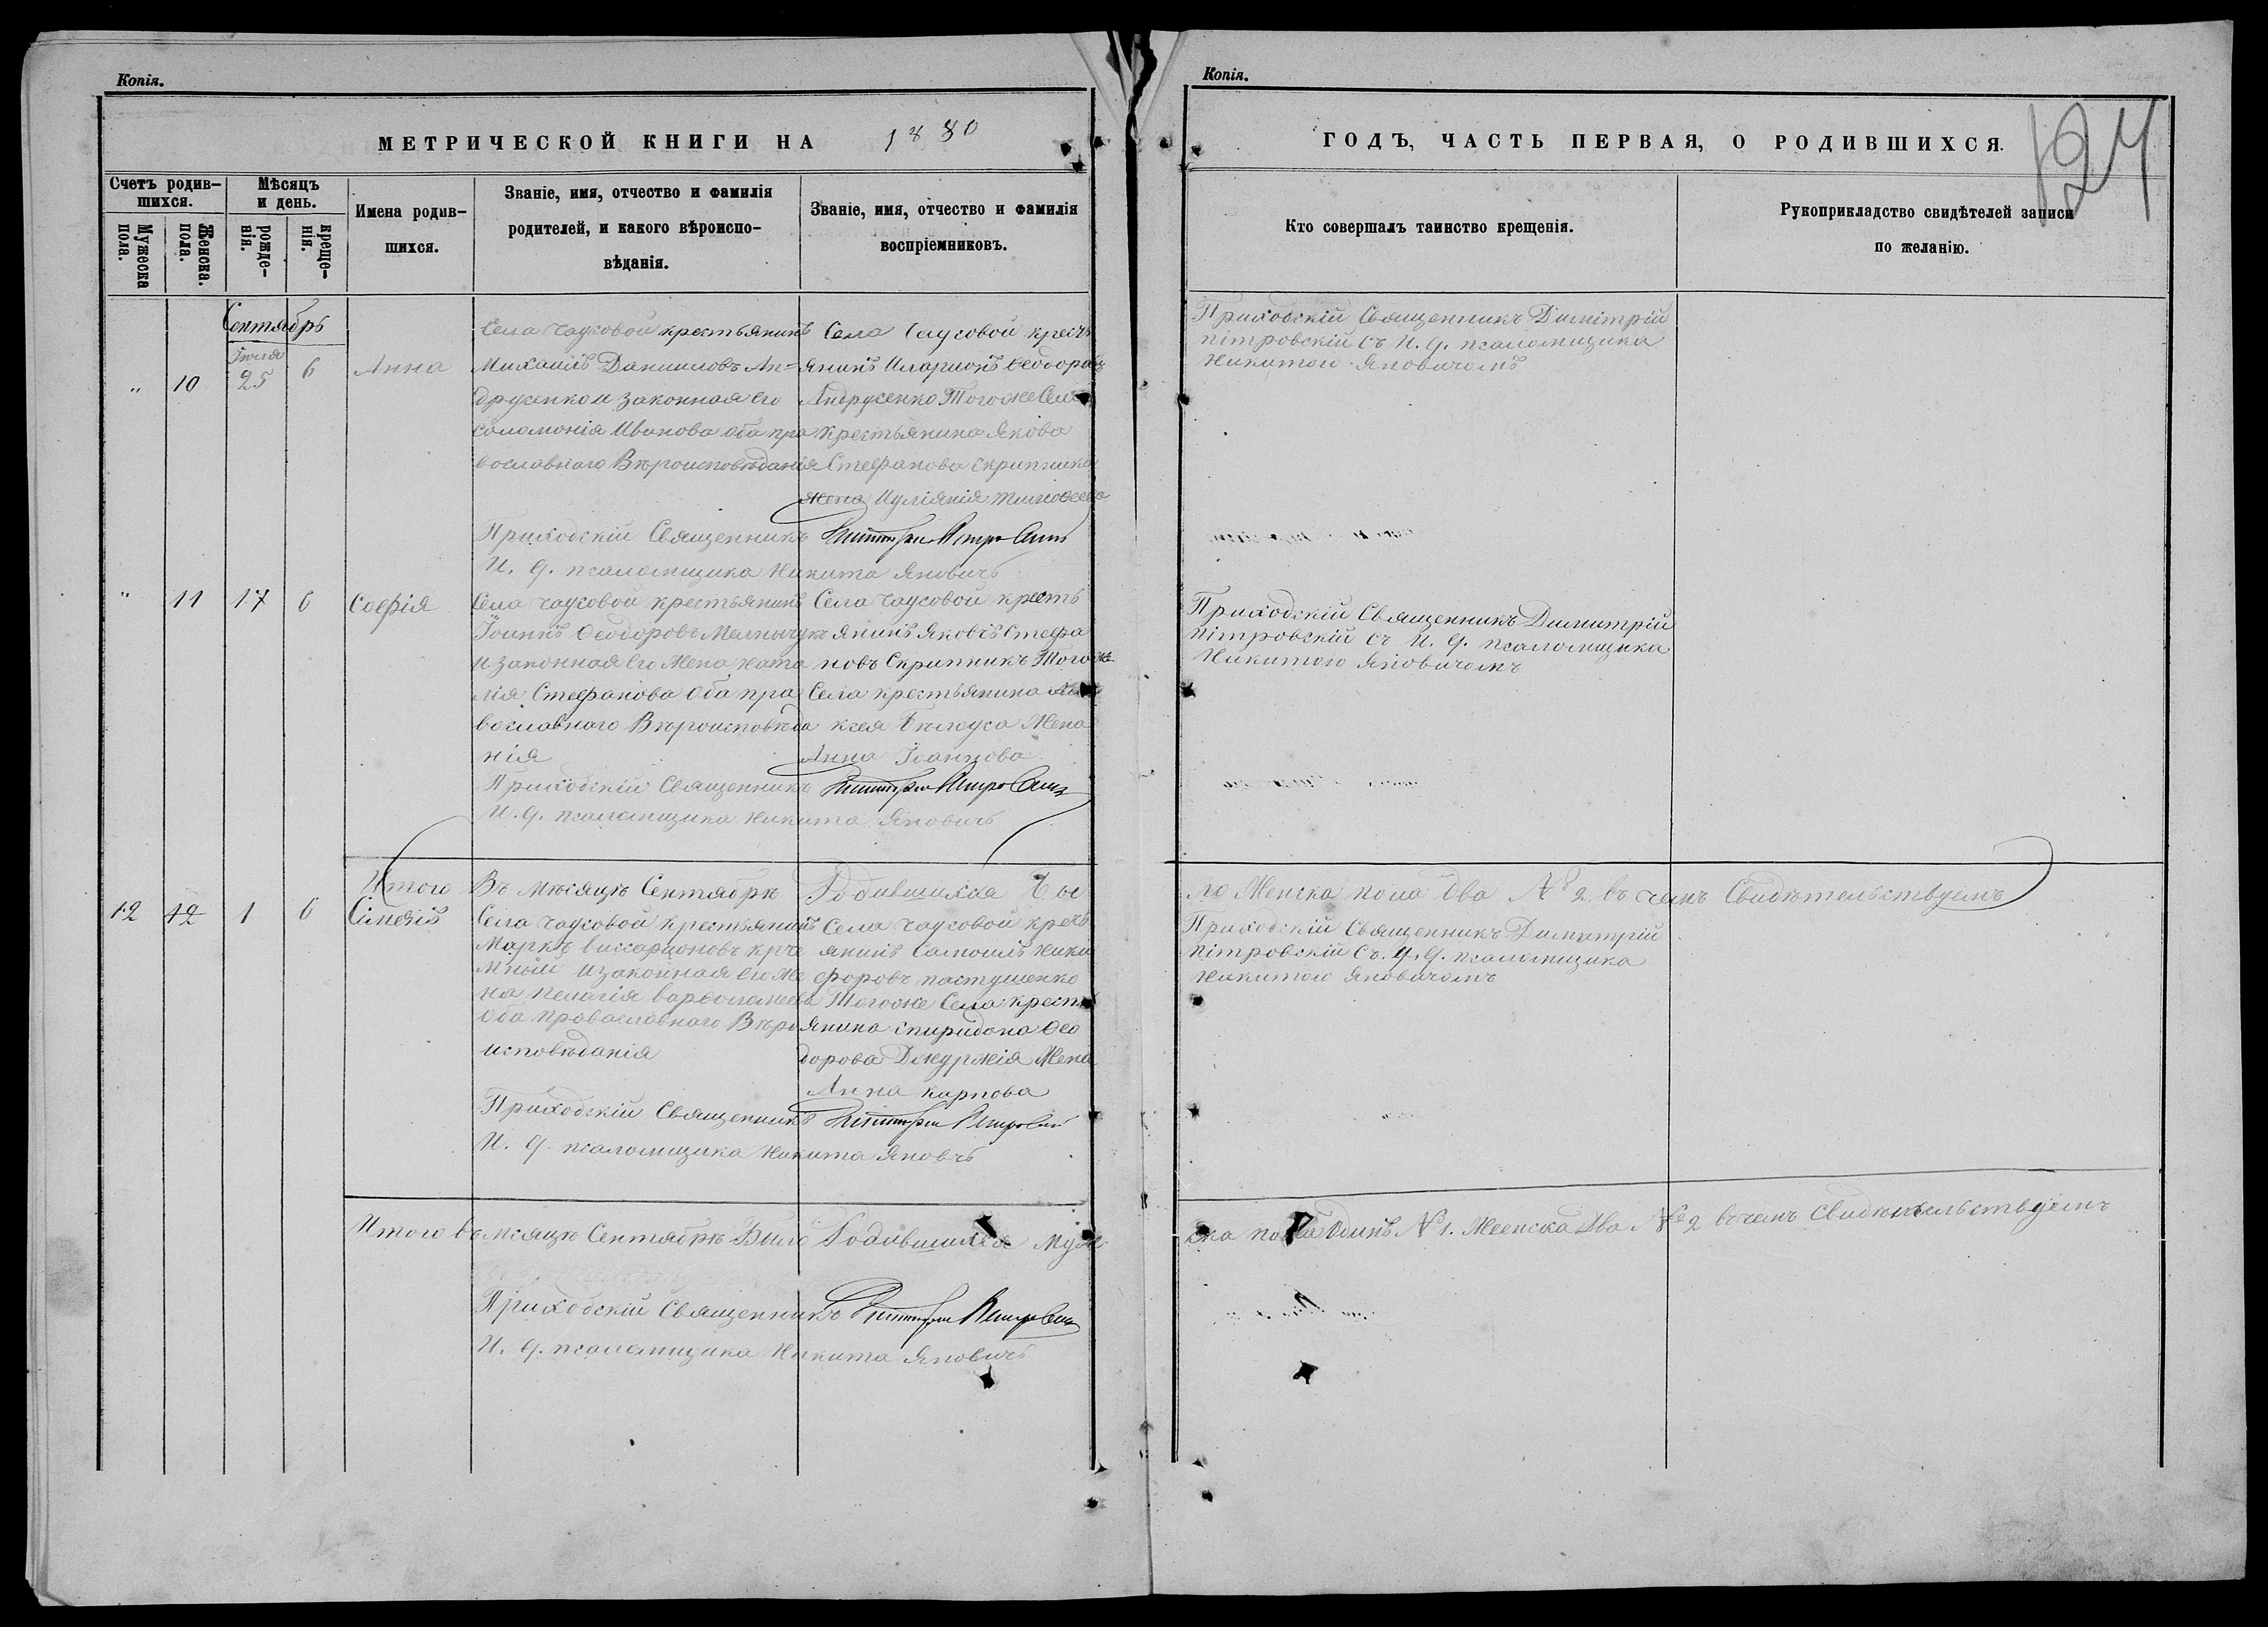 Копія.
МЕТРИЧЕСКОЙ КНИГИ НА 1880
Счетъ родив-
шихся.
Мѣсяцъ
и день.
Мужеска
пола.
Женска.
пола.
рожде-
нія.
креще-
нія.
Имена родив-
шихся.
Званіе, имя, отчество и фамилія
родителей, и какого вѣроиспо-
вѣданія.
Званіе, имя, отчество и фамилія
воспріемниковъ.
Сентябрь
"
10
Іюля
25
6
Анна
Села Чаусовой крестьянинъ
Михаилъ Данииловъ Ан=
друсенко и законная его
Соломонія Иванова оба пра
вославнаго Вѣроисповѣданія
Села Чаусовой кресть
янинъ Иларионъ Ѳеодоровъ
Андрусенко Тогоже Села
Крестьянина Якова
Стефанова Скрипника
жена Иуліянія Тимоѳеева
Приходскій Священникъ
И. д. псаломщика Никита Яновичъ
"
11
17
6
Софія
Села Чаусовой крестьянинъ
Іоаннъ Ѳеодоровъ Мельничукъ
и законная его Жена Ната
лія Стефанова Оба пра
вославнаго Вѣроисповѣда
нія
Села Чаусовой кресть
янинъ Яковъ Стефа
новъ Скрипникъ Тогоже
Села крестьянина Але
ксея Жена
Анна
Приходскій Священникъ
И. д. псаломщика Никита Яновичъ
Итого Въ Мѣсяцѣ Сентябрѣ Родившихся Бы
12
12
1
6
Сімеонъ
Села Чаусовой крестьянинъ
Маркъ Виссарионовъ
и законная его Же
на Пелагія Варѳоломеева
Оба Православнаго Вѣро
исповѣданія
Села Чаусовой кресть
янинъ Самоилъ Ники
форовъ Пастушенко
Тогоже Села крестъ
янина Спиридона Ѳео
дорова Джуржія Жена
Анна Карпова
Приходскій Священникъ
И. д. псаломщика Никита Яновчъ
Итого въ мсяцѣ Сентябрѣ Было Родившихся Муж
Приходскій Священникъ
И. д. псаломщика Никита Яновичъ
Копія.
124
ГОДЪ, ЧАСТЬ ПЕРВАЯ, О РОДИВШИХСЯ.
Кто совершалъ таинство крещенія.
Рукоприкладство свидѣтелей записи
по желанію.
Приходскій Священникъ Димітрій
Пітровскій Съ И. д. псаломщика
Никитою Яновичомъ
Приходскій Священникъ Димитрій
Пітровскій съ И. д. псаломщика
Никитою Яновичомъ
ло Женска пола два № 2 въ чемъ Свидѣтельствуемъ
Приходскій Священникъ Димитрій
Пітровскій Съ. И. д. псаломщика
Никитою Яновичомъ
ска пола Одинъ № 1. Женска Два № 2 въ чемъ Свидѣтельствуемъ